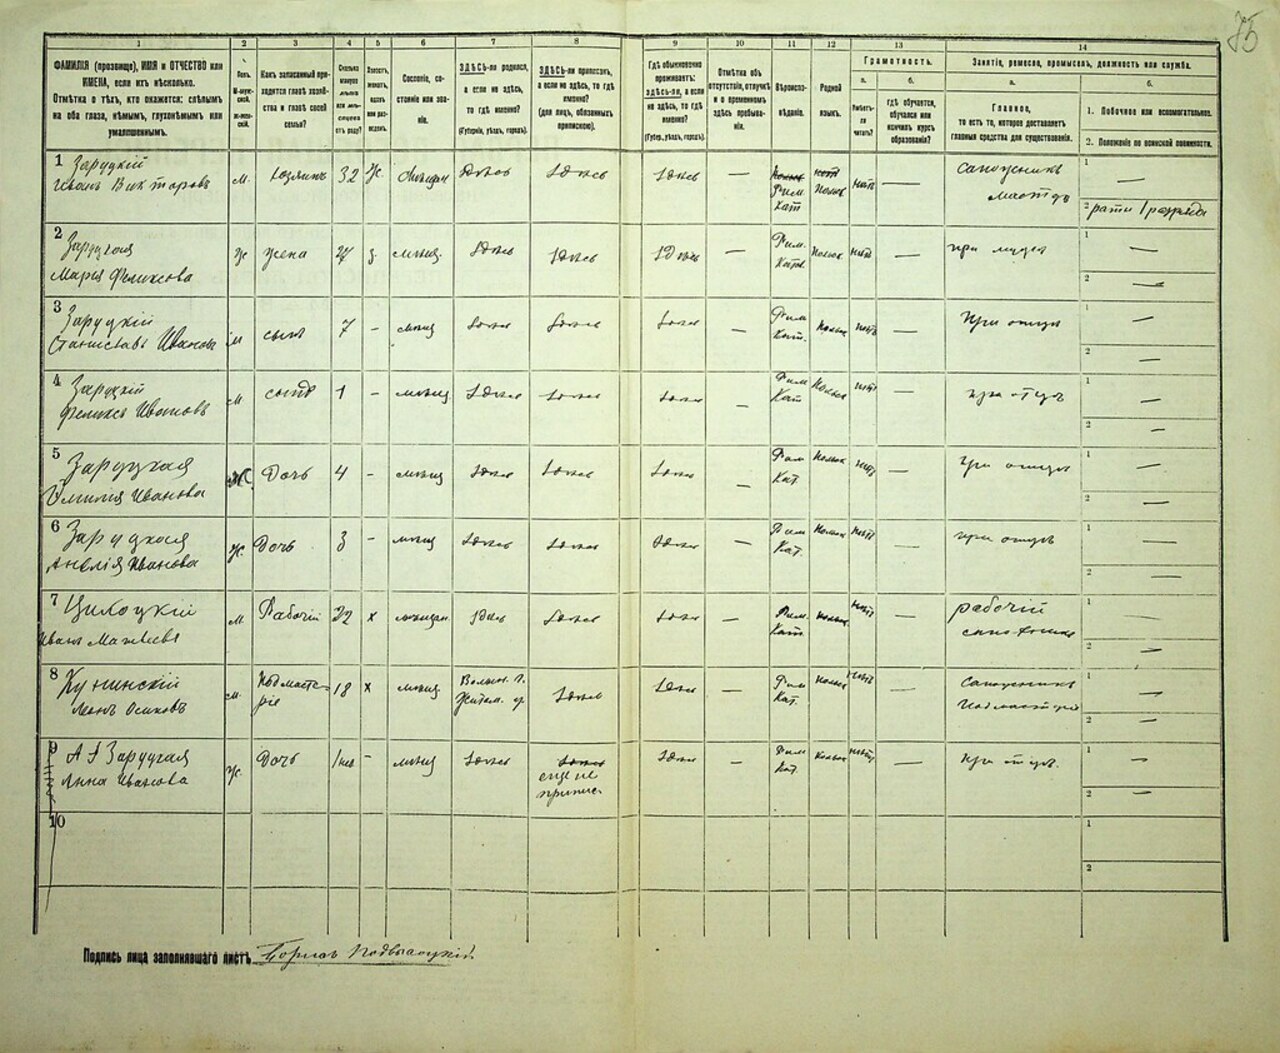 75
1 2 3 4 5 6 7 8 9 10 11 12 13 14
ФАМИЛІЯ (прозвище), ИМЯ и ОТЧЕСТВО или
ИМЕНА, если ихъ нѣсколько.
Отмѣтка о тѣхъ, кто окажется: слѣпымъ
на оба глаза, нѣмымъ, глухонѣмымъ или
умалишеннымъ.
Полъ.
М-мужской.
Ж-женскій.
Какъ записанный приходится
главѣ хозяйства
и главѣ своей
семьи?
Сколько
минуло
лѣтъ
или мѣсяцевъ
отъ роду?
Холостъ,
женатъ,
вдовъ
или разведенъ.
Сословіе, состояніе
или званіе.
ЗДѢСЬ-ли родился,
а если не здѣсь,
то гдѣ именно?
(Губернія, уѣздъ, городъ).
ЗДѢСЬ-ли приписанъ,
а если не здѣсь, то гдѣ
именно?
(для лицъ, обязанныхъ
припискою).
Гдѣ обыкновенно
проживаетъ:
здѣсь-ли, а если
не здѣсь, то гдѣ
именно?
(Губер., уѣздъ, городъ).
Отмѣтка объ
отсутствіи, отлучкѣ
и о временномъ
здѣсь пребываніи.
Вѣроисповѣданіе.
Родной
языкъ.
Грамотность.
а. б.
Умѣетъ-ли
читать?
гдѣ обучается,
обучался или
кончилъ курсъ
образованія?
Занятіе, ремесло, промыселъ, должность или служба.
а. б.
Главное,
то есть то, которое доставляетъ
главныя средства для существованія.
1. Побочное или вспомогательное.
2. Положеніе по воинской повинности.
1 Заруцкій
Иванъ Викторовъ м. хозяинъ 32 ж. мѣщан здѣсь здѣсь здѣсь — Рим. Кат польск нѣтъ — сапожникъ мастеръ 1 —
2 рати 1 разряда
2 Заруцкая
Марія Феликсова ж жена 27 з. мѣщ. здѣсь здѣсь здѣсь — Рим. Кат. польск нѣтъ — при мужѣ 1 —
2 —
3 Заруцкій
Станиславъ Ивановъ м сынъ 7 – мѣщ здѣсь здѣсь здѣсь — Рим Кат. польск нѣтъ — при отцѣ 1 —
2 —
4 Заруцкій
Феликсъ Ивановъ м сынъ 1 – мѣщ здѣсь здѣсь здѣсь — Рим Кат польск нѣтъ — при отцѣ 1 —
2 —
5 Заруцкая
Эмилія Иванова Ж Дочь 4 – мѣщ здѣсь здѣсь здѣсь — Рим Кат польск нѣтъ — при отцѣ 1 —
2 —
6 Заруцкая
Анелія Иванова ж. Дочь 3 – мѣщ здѣсь здѣсь здѣсь — Рим Кат. польск нѣтъ — при отцѣ 1 —
2 —
7
Иванъ м Рабочій 22 х мѣщан здѣсь здѣсь здѣсь — Рим. Кат. польск нѣтъ — рабочій 1 —
2 —
8 Кунинскій
Осиповъ м. Подмастеріе 18 х мѣщ Волын. г. Житом. у. здѣсь здѣсь — Рим Кат. польск нѣтъ — Сапожникъ подмастеріе 1 —
2 —
9 Заруцкая
Анна Иванова ж. Дочь – мѣщ здѣсь здѣсь еще не припис. здѣсь — Рим Кат. польск нѣтъ — при отцѣ. 1 —
2 —
10 1
2
Подпись лица заполнявшаго листъ Борисъ Подвысоцкій